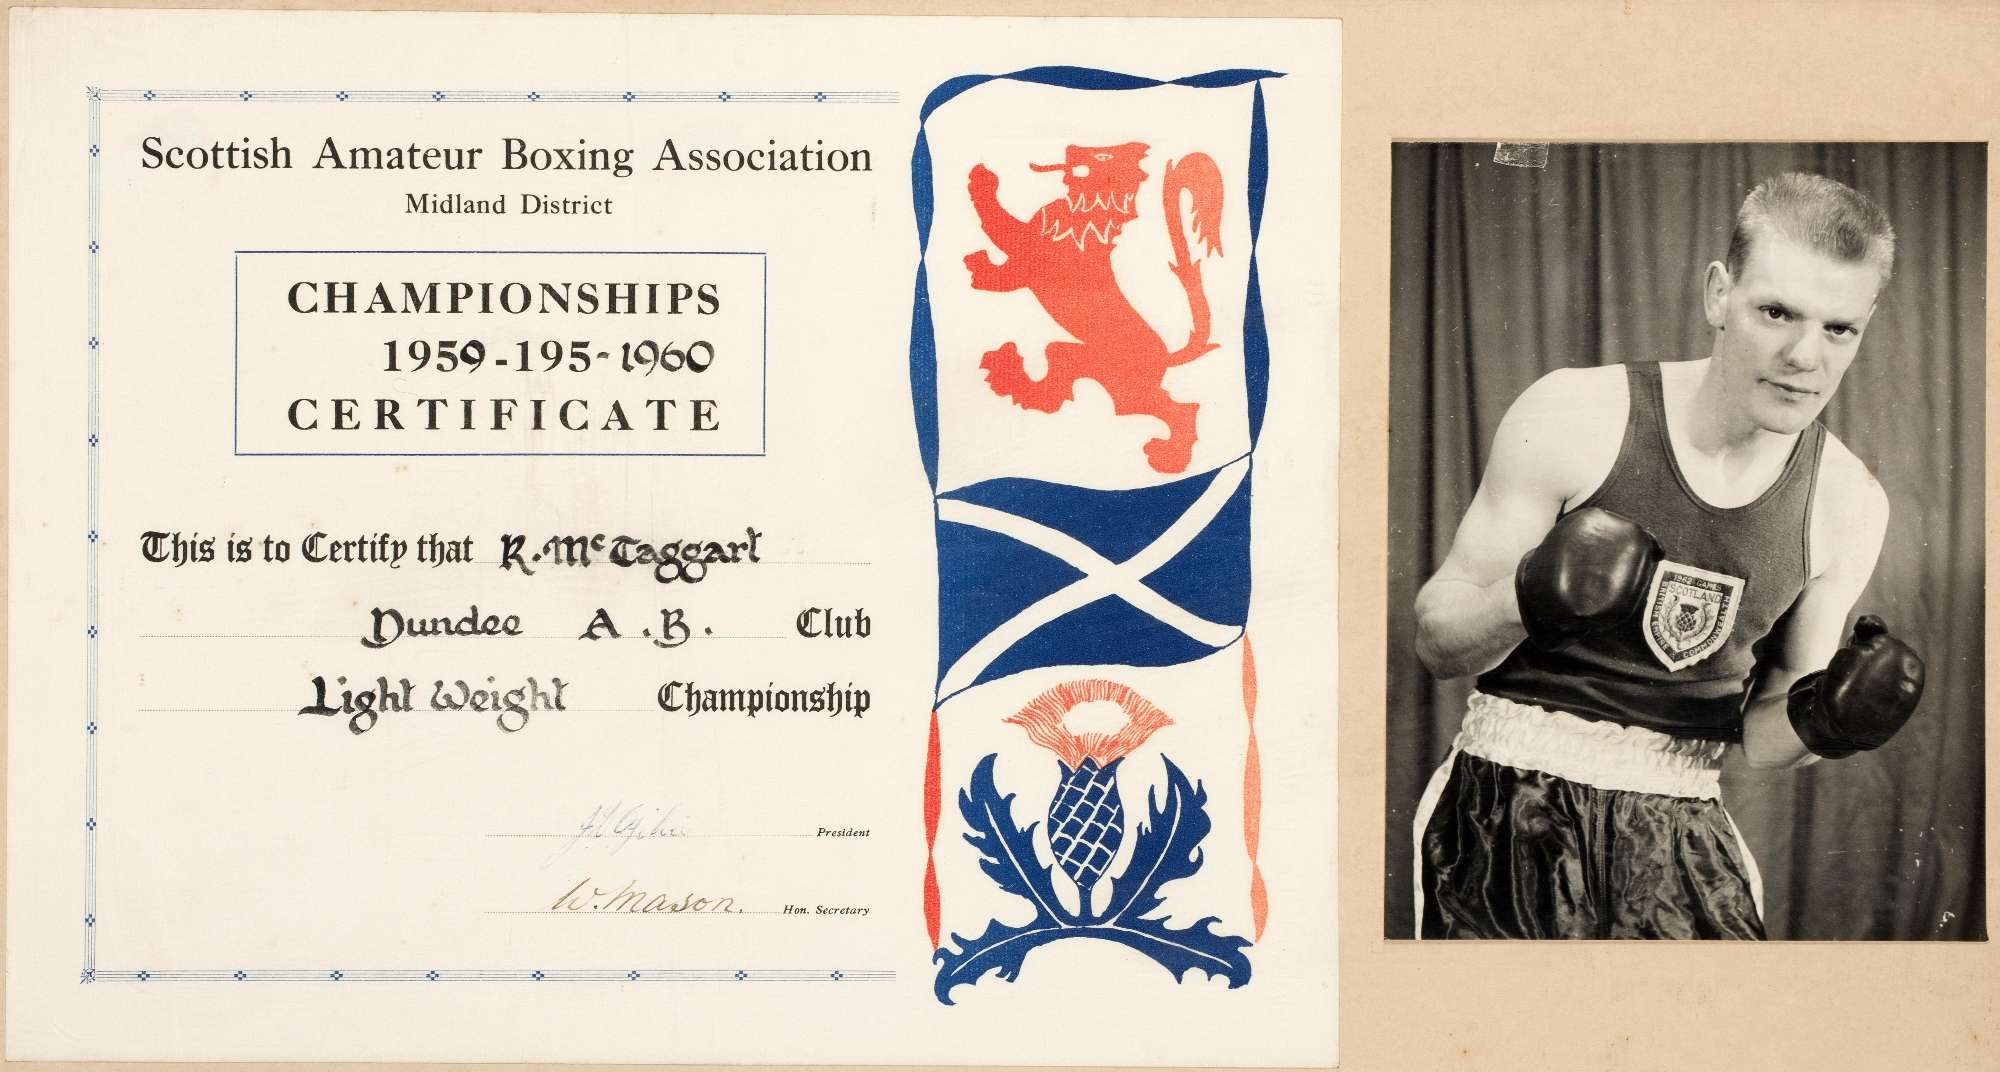 Scottish Amateur Boxing Association
Midland District
CHAMPIONSHIPS
1959-195-1960
CERTIFICATE
This is to Certify that R. Mc Taggart
Dundee A.B. Club
Light Weight Championship
President
W. Mason. Hon. Secretary
1962 GAMES
SCOTLAND
BRITISH EMPIRE & COMMONWEALTH